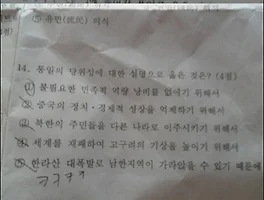 ⑤ 유민(流民) 의식
14. 통일의 당위성에 대한 설명으로 옳은 것은? (4점)
① 불필요한 민족적 역량 낭비를 없애기 위해서
② 중국의 정치·경제적 성장을 억제하기 위해서
③ 북한의 주민들을 다른 나라로 이주시키기 위해서
④ 세계를 재패하여 고구려의 기상을 높이기 위해서
⑤ 한라산 대폭발로 남한지역이 가라앉을 수 있기 때문에
ㅋㅋㅋㅋ